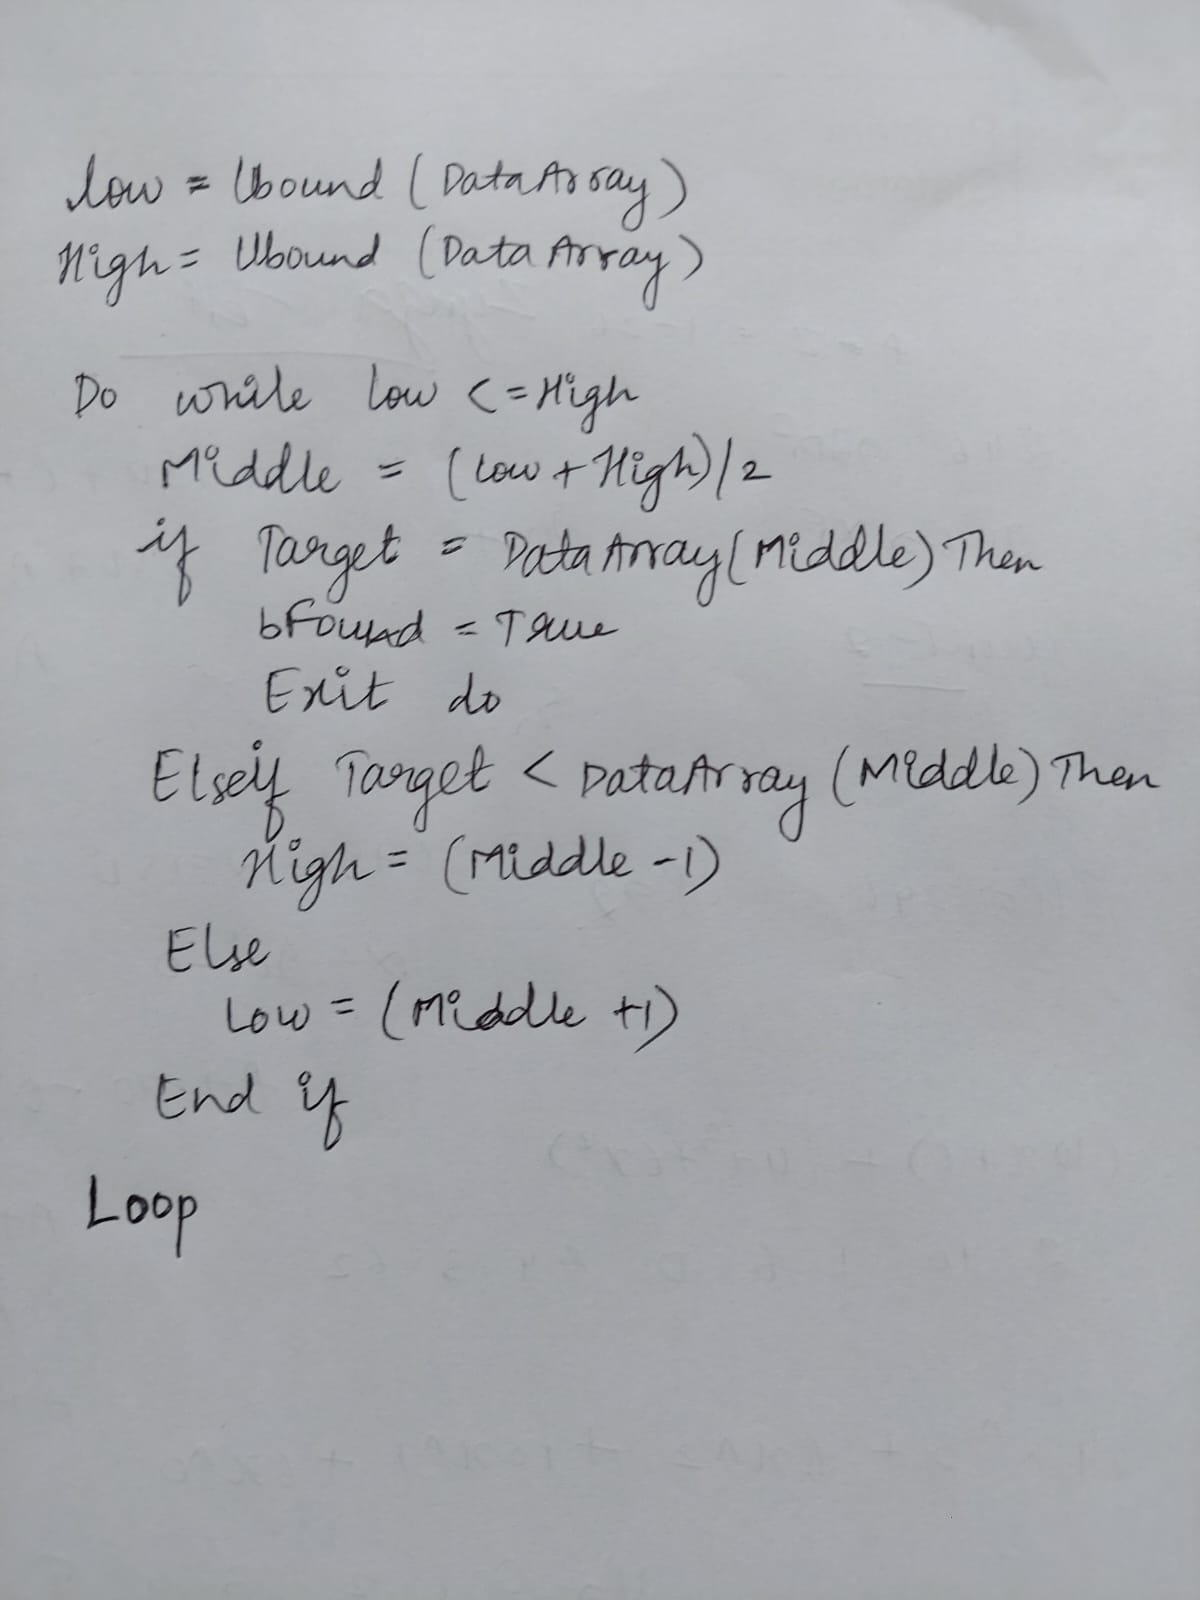 low = Ubound (DataArray)
High = Ubound (Data Array)
Do while low <= High
Middle = (Low + High)/2
if Target = DataArray(Middle) Then
bFound = True
Exit do
Elseif Target < DataArray (Middle) Then
High = (Middle -1)
Else
Low = (Middle +1)
End if
Loop